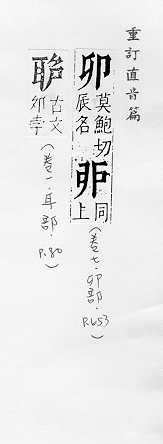 重訂直音篇
卯莫鮑切辰名戼同上
(卷七·卯部·P.653)
古文卯字
(卷一·耳部·P.80)